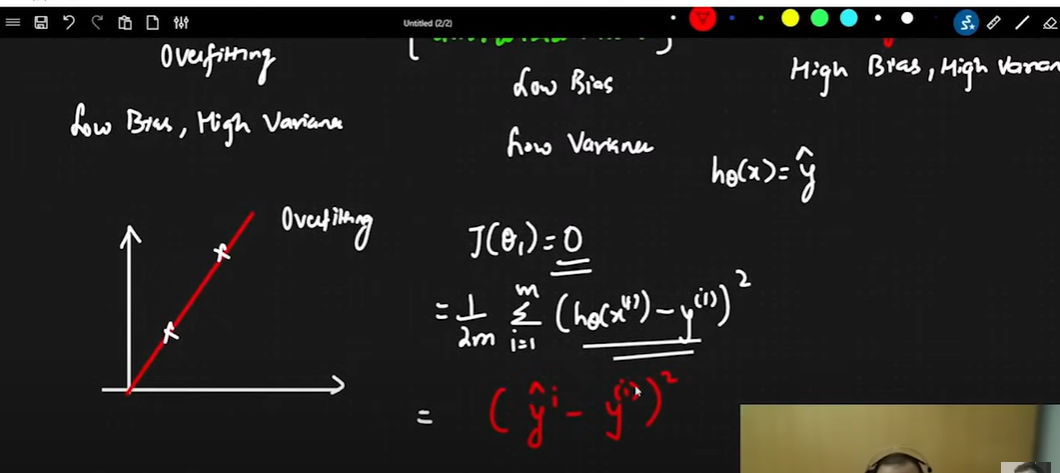 Untitled (2/2)
Overfitting
Low Bias, High Variance
Low Bias
Low Variance
High Bias, High Varian
hθ(x) = ŷ
Overfitting
J(θ₁) = 0
= 1/2m Σ i=1 m (hθ(x⁽ⁱ⁾) - y⁽ⁱ⁾)²
= (ŷⁱ - y⁽ⁱ⁾)²